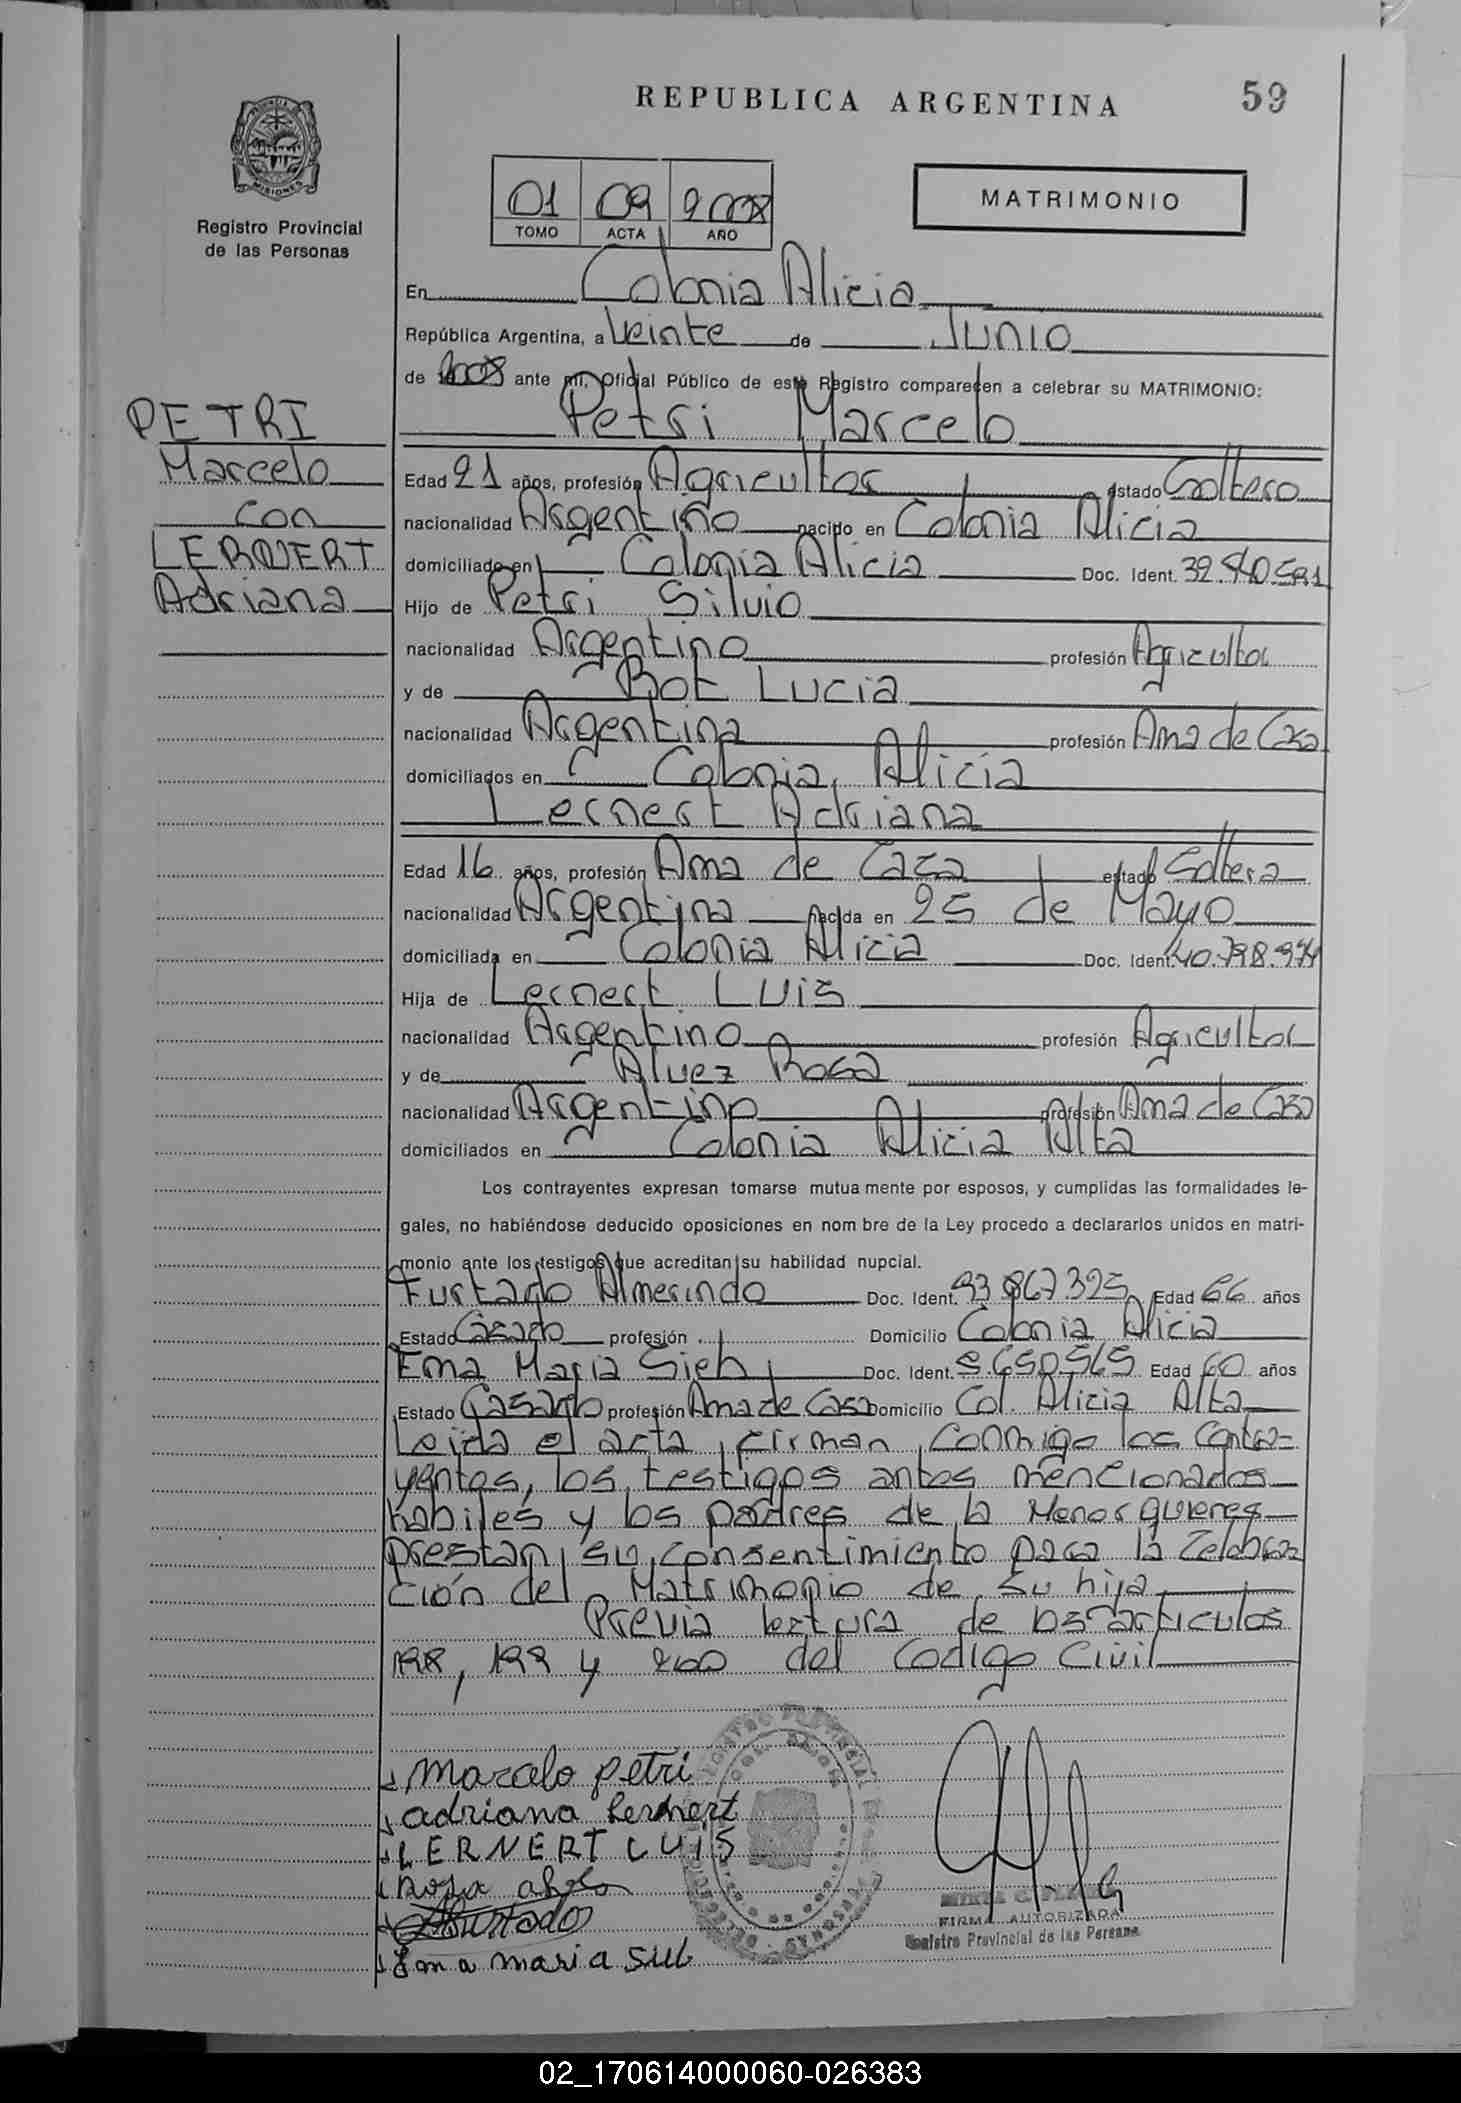 REPUBLICA ARGENTINA
59
MISIONES
Registro Provincial
de las Personas
01 09 2008
TOMO ACTA AÑO
MATRIMONIO
En Colonia Alicia
República Argentina, a Veinte de Junio
de 2008 ante mi, Oficial Público de este Registro comparecen a celebrar su MATRIMONIO:
Petri Marcelo
PETRI
Marcelo
con
LERNERT
Adriana
Edad 21 años, profesión Agricultor estado Soltero
nacionalidad Argentino nacido en Colonia Alicia
domiciliado en Colonia Alicia Doc. Ident. 32.540.581
Hijo de Petri Silvio
nacionalidad Argentino profesión Agricultor
y de Bot Lucia
nacionalidad Argentina profesión Ama de Casa
domiciliados en Colonia Alicia
Lernert Adriana
Edad 16 años, profesión Ama de Casa estado Soltera
nacionalidad Argentina nacida en 25 de Mayo
domiciliada en Colonia Alicia Doc. Ident. 40.798.974
Hija de Lernert Luis
nacionalidad Argentino profesión Agricultor
y de Alvez Rosa
nacionalidad Argentino profesión Ama de Casa
domiciliados en Colonia Alicia Alta
Los contrayentes expresan tomarse mutua mente por esposos, y cumplidas las formalidades le-
gales, no habiéndose deducido oposiciones en nom bre de la Ley procedo a declararlos unidos en matri-
monio ante los testigos que acreditan su habilidad nupcial.
Furtado Almerindo Doc. Ident. 93.867.395 Edad 66 años
Estado Casado profesión Domicilio Colonia Alicia
Ema Maria Sieh Doc. Ident. 5.650.565 Edad 60 años
Estado Casado profesión Ama de Casa Domicilio Col. Alicia Alta
Leida el acta, firman conmigo los Contra-
yentes, los testigos antes mencionados
habiles y los padres de la Menor quienes
prestan su consentimiento para la Celebra
ción del Matrimonio de su hija
Previa lectura de los articulos
198, 199 y 200 del Codigo Civil
Marcelo petri
adriana Lernert
LERNERT LUIS
Rosa
Furtado
Ema maria
FIRMA AUTORIZADA
Registro Provincial de las Persona
02_170614000060-026383